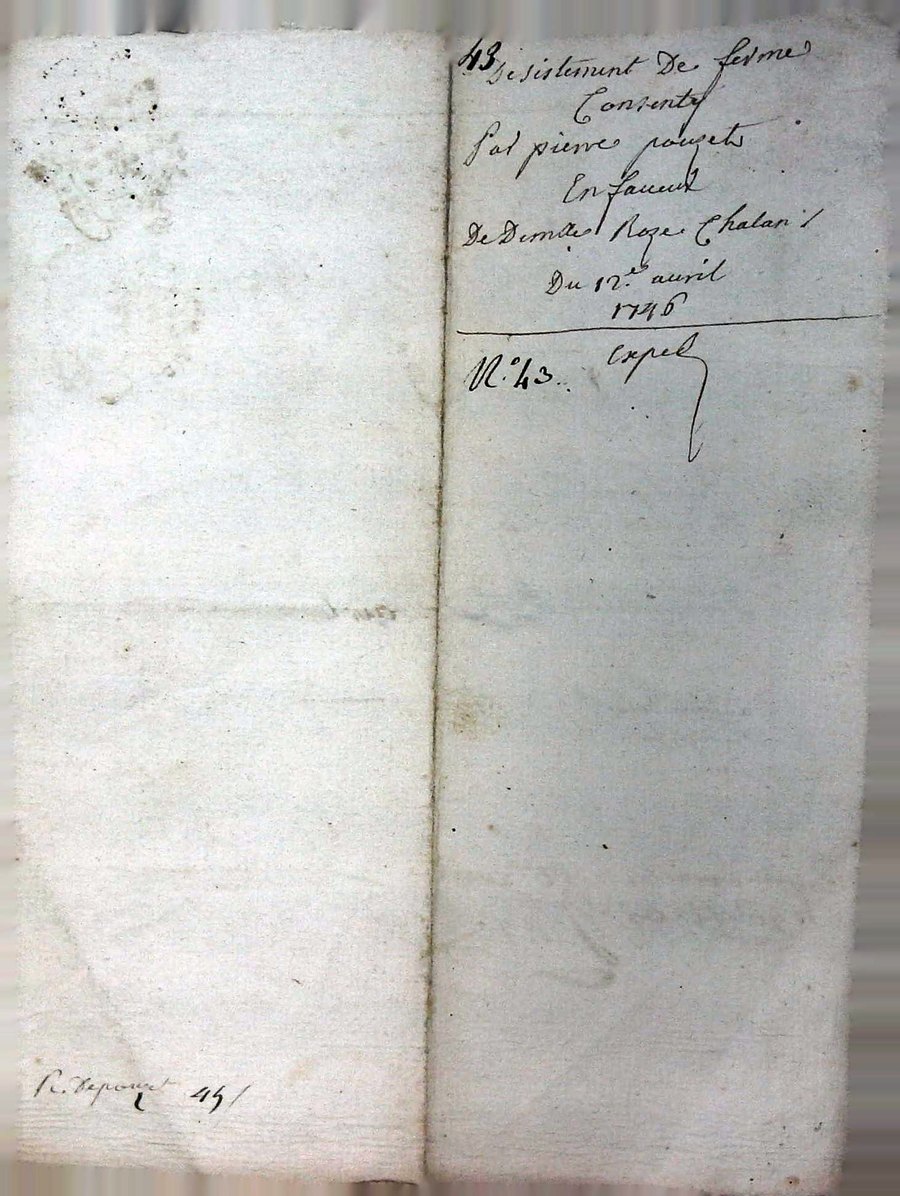 43
Desistement De ferme
Consenty
Par pierre pouget
En faueur
De Demlle Roze Chalan
Du 12e. auril
1746
No. 43. Exped
R. Depouget 45